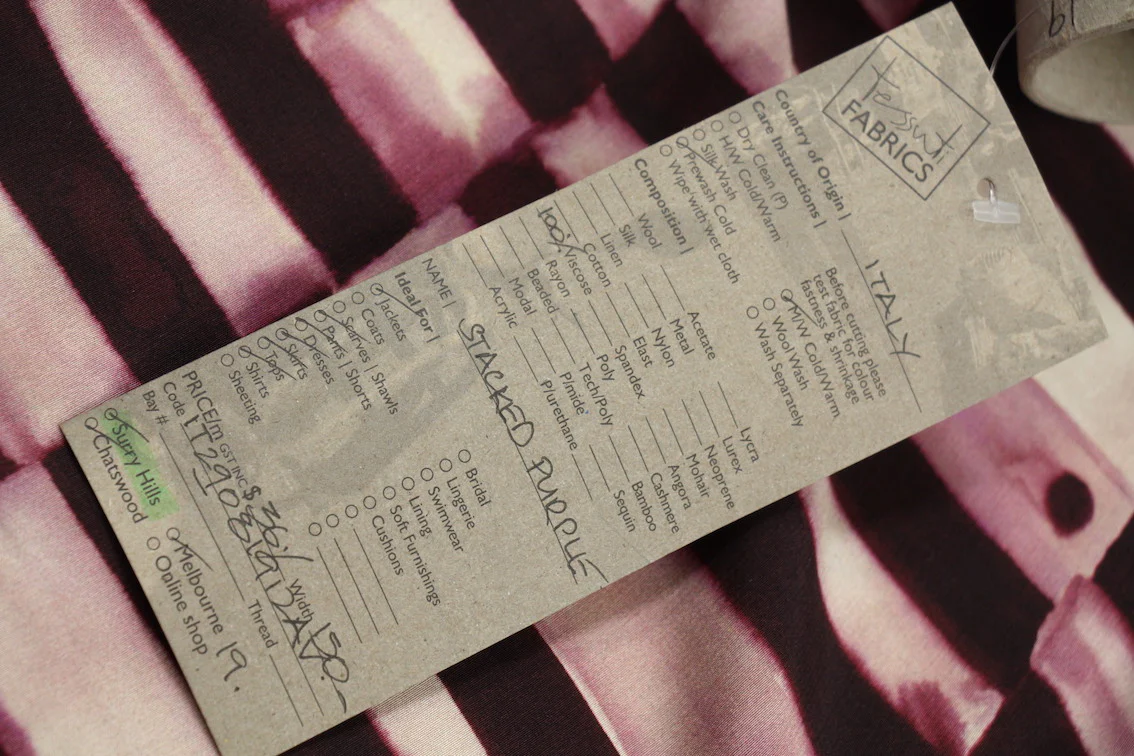 tessuti
FABRICS
Country of Origin | ITALY
Care Instructions |
Before cutting please
test fabric for colour
fastness & shrinkage
Dry Clean (P)
H/W Cold/Warm
Silk Wash
Prewash Cold
Wipe with wet cloth
M/W Cold/Warm
Wool Wash
Wash Separately
Composition |
Wool
Silk
Linen
100% Cotton
Viscose
Rayon
Beaded
Modal
Acrylic
Acetate
Metal
Nylon
Elast
Spandex
Poly
Tech/Poly
P/mide
P/urethane
Lycra
Lurex
Neoprene
Mohair
Angora
Cashmere
Bamboo
Sequin
NAME | STACKED PURPLE
Ideal For |
Jackets
Coats
Scarves | Shawls
Pants | Shorts
Dresses
Skirts
Tops
Shirts
Sheeting
Bridal
Lingerie
Swimwear
Lining
Soft Furnishings
Cushions
PRICE/m GST INC $36.- Width 150-
Code
Bay # Thread
Surry Hills
Chatswood
Melbourne 19.
Online shop